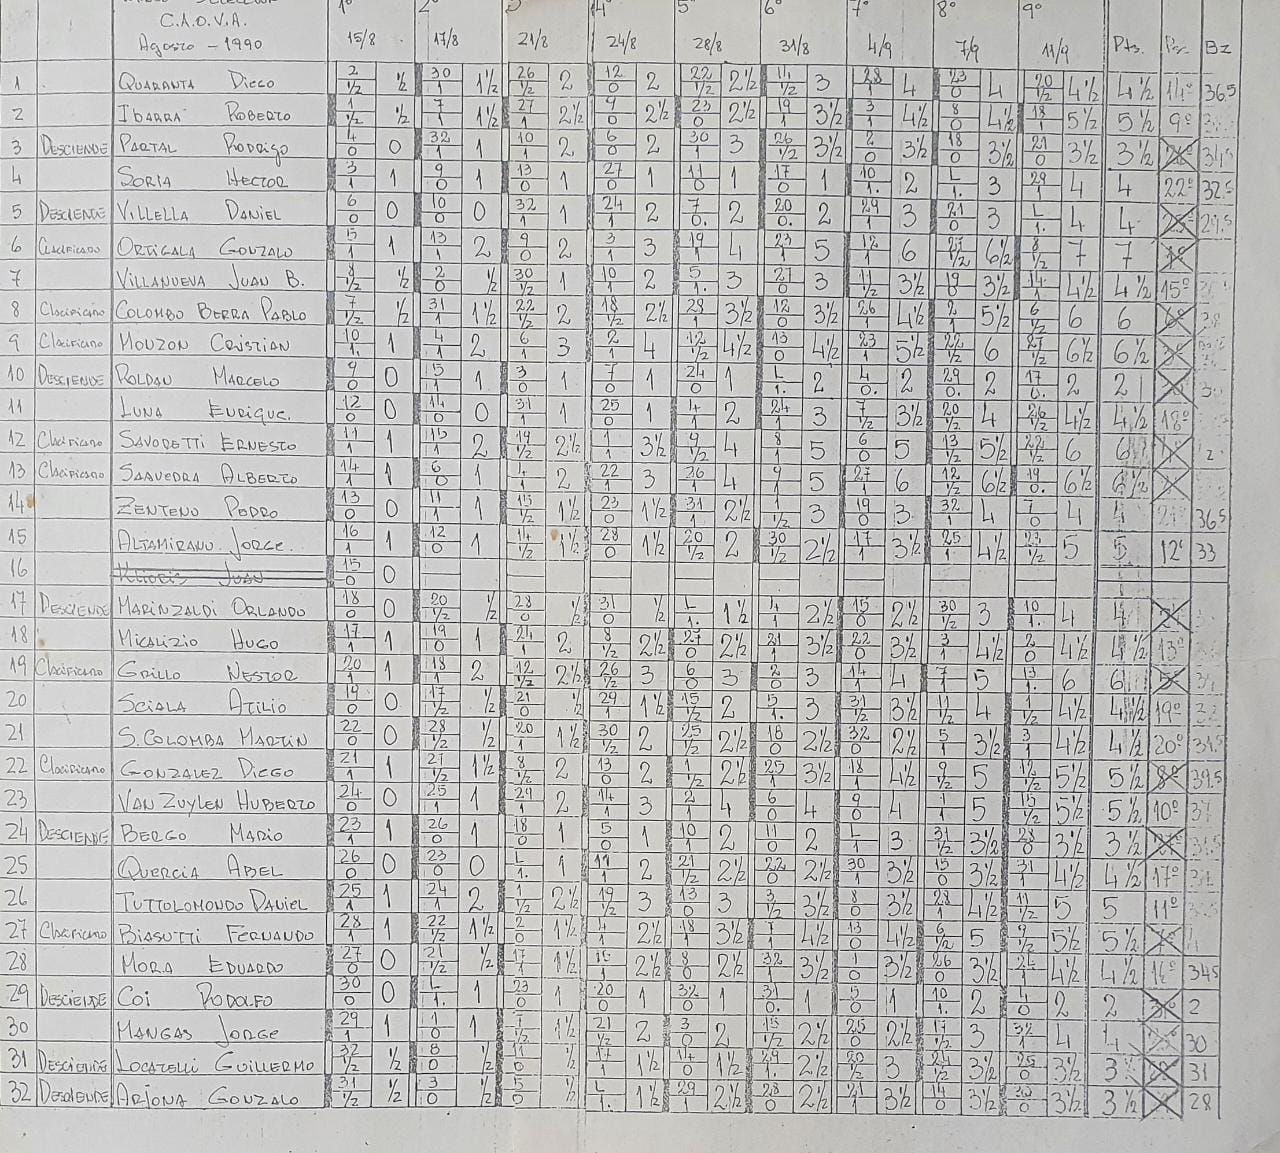 C.A.O.V.A.
Agosto - 1990
1º 2º 3 4º 5º 6º 7º 8º 9º
15/8 17/8 21/8 24/8 28/8 31/8 4/9 7/9 11/9 Pts. Bz
1 QUARANTA DIEGO 2 ½ ½ 30 1 1½ 26 ½ 2 12 0 2 22 ½ 2½ 11 ½ 3 28 1 4 23 0 4 20 ½ 4½ 4½ 14º 36.5
2 IBARRA ROBERTO 1 ½ ½ 7 1 1½ 27 1 2½ 9 0 2½ 23 0 2½ 19 1 3½ 3 1 4½ 8 0 4½ 18 1 5½ 5½ 9º
3 DESCIENDE PARTAL RODRIGO 4 0 0 32 1 1 10 1 2 6 0 2 30 1 3 26 ½ 3½ 2 0 3½ 18 0 3½ 21 0 3½ 3½ 34.5
4 SORIA HECTOR 3 1 1 9 0 1 13 0 1 27 0 1 11 0 1 17 0 1 10 1. 2 L 1. 3 29 1 4 4 22º 32.5
5 DESCIENDE VILLELLA DANIEL 6 0 0 10 0 0 32 1 1 24 1 2 7 0. 2 20 0. 2 29 1 3 21 0 3 L 1. 4 4 29.5
6 Clacificano ORTIGALA GONZALO 5 1 1 13 1 2 9 0 2 3 1 3 19 1 4 23 1 5 12 1 6 27 ½ 6½ 8 ½ 7 7 1º
7 VILLANUEVA JUAN B. 8 ½ ½ 2 0 ½ 30 1 1 10 1 2 5 1. 3 27 0 3 11 ½ 3½ 19 0 3½ 14 1 4½ 4½ 15º
8 Clacificano COLOMBO BERRA PABLO 7 ½ ½ 31 1 1½ 22 ½ 2 18 ½ 2½ 28 1 3½ 12 0 3½ 26 1 4½ 2 1 5½ 6 ½ 6 6 6º 38
9 Clacificano MOUZON CRISTIAN 10 1. 1 4 1 2 6 1 3 2 1 4 12 ½ 4½ 13 0 4½ 23 1 5½ 22 ½ 6 27 ½ 6½ 6½ 3º
10 DESCIENDE ROLDAN MARCELO 9 0 0 15 1 1 3 0 1 7 0 1 24 0 1 L 1. 2 4 0. 2 29 0 2 17 0. 2 2
11 LUNA ENRIQUE. 12 0 0 14 0 0 31 1 1 25 0 1 4 1 2 24 1 3 7 ½ 3½ 20 ½ 4 26 ½ 4½ 4½ 18º
12 Clacificano SAVORETTI ERNESTO 11 1 1 15 1 2 19 ½ 2½ 1 1 3½ 9 ½ 4 8 1 5 6 0 5 13 ½ 5½ 22 ½ 6 6
13 Clacificano SAAVEDRA ALBERTO 14 1 1 6 0 1 4 1 2 22 1 3 26 1 4 9 1 5 27 1 6 12 ½ 6½ 19 0. 6½ 6½
14 ZENTENO PEDRO 13 0 0 11 1 1 15 ½ 1½ 23 0 1½ 31 1 2½ 1 ½ 3 19 0 3 32 1 4 7 0 4 4 36.5
15 ALTAMIRANO JORGE. 16 1 1 12 0 1 14 ½ 1½ 28 0 1½ 20 ½ 2 30 ½ 2½ 17 1 3½ 25 1. 4½ 23 ½ 5 5 12º 33
16 JUAN 15 0 0
17 DESCIENDE MARINZALDI ORLANDO 18 0 0 20 ½ ½ 28 0 ½ 31 0 ½ L 1. 1½ 4 1 2½ 15 0 2½ 30 ½ 3 10. 1 4 4
18 MICALIZIO HUGO 17 1 1 19 0 1 24 1 2 8 ½ 2½ 27 0 2½ 21 1 3½ 22 0 3½ 3 1 4½ 2. 0 4½ 4½ 13º
19 Clacificano GRILLO NESTOR 20 1 1 18 1 2 12 ½ 2½ 26 ½ 3 6 0 3 2 0 3 14 1 4 7 1 5 13 1. 6 6 5º
20 SCIALA ATILIO 19 0 0 17 ½ ½ 21 0 ½ 29 1 1½ 15 ½ 2 5 1. 3 31 ½ 3½ 11 ½ 4 1 ½ 4½ 4½ 19º
21 S.COLOMBA MARTIN 22 0 0 28 ½ ½ 20 1 1½ 30 ½ 2 25 ½ 2½ 18 0 2½ 32 0 2½ 5 1 3½ 3 1 4½ 4½ 20º 31.5
22 Clacificano GONZALEZ DIEGO 21 1 1 27 ½ 1½ 8 ½ 2 13 0 2 1 ½ 2½ 25 1 3½ 18 1 4½ 9 ½ 5 12 ½ 5½ 5½ 8º 39.5
23 VAN ZUYLEN HUBERTO 24 0 0 25 1 1 29 1 2 14 1 3 2 1 4 6 0 4 9 0 4 1 1 5 15 ½ 5½ 5½ 10º 37
24 DESCIENDE BERGO MARIO 23 1 1 26 0 1 18 0 1 5 0 1 10 1 2 11 0 2 L 1 3 31 ½ 3½ 28 0 3½ 3½
25 QUERCIA ABEL 26 0 0 23 0 0 L 1. 1 11 1 2 21 ½ 2½ 22 0 2½ 30 1 3½ 15 0 3½ 31 1 4½ 4½ 17º
26 TUTTOLOMONDO DANIEL 25 1 1 24 1 2 1 ½ 2½ 19 ½ 3 13 0 3 3 ½ 3½ 8 0 3½ 28 1 4½ 11 ½ 5 5 11º
27 Clacificano BIASUTTI FERNANDO 28 1 1 22 ½ 1½ 2 0 1½ 4 1 2½ 18 1 3½ 7 1 4½ 13 0 4½ 6 ½ 5 9 ½ 5½ 5½
28 MORA EDUARDO 27 0 0 21 ½ ½ 17 1 1½ 15 1 2½ 8 0 2½ 32 1 3½ 1 0 3½ 26 0 3½ 24 1 4½ 4½ 16º 34.5
29 DESCIENDE COI RODOLFO 30 0 0 L 1. 1 23 0 1 20 0 1 32 0 1 31 0. 1 5 0 1 10 1. 2 4 0 2 2 2
30 MANGAS JORGE 29 1 1 1 0 1 7 ½ 1½ 21 ½ 2 3 0 2 15 ½ 2½ 25 0 2½ 17 ½ 3 32 1 4 4 30
31 DESCIENDE LOCATELLI GUILLERMO 32 ½ ½ 8 0 ½ 11 0 ½ 17 1 1½ 14 0 1½ 29 1. 2½ 20 ½ 3 24 ½ 3½ 25 0 3½ 3½ 31
32 DESCIENDE ARJONA GONZALO 31 ½ ½ 3 0 ½ 5 0 ½ L 1. 1½ 29 1 2½ 28 0 2½ 21 1 3½ 14 0 3½ 30 0 3½ 3½ 28